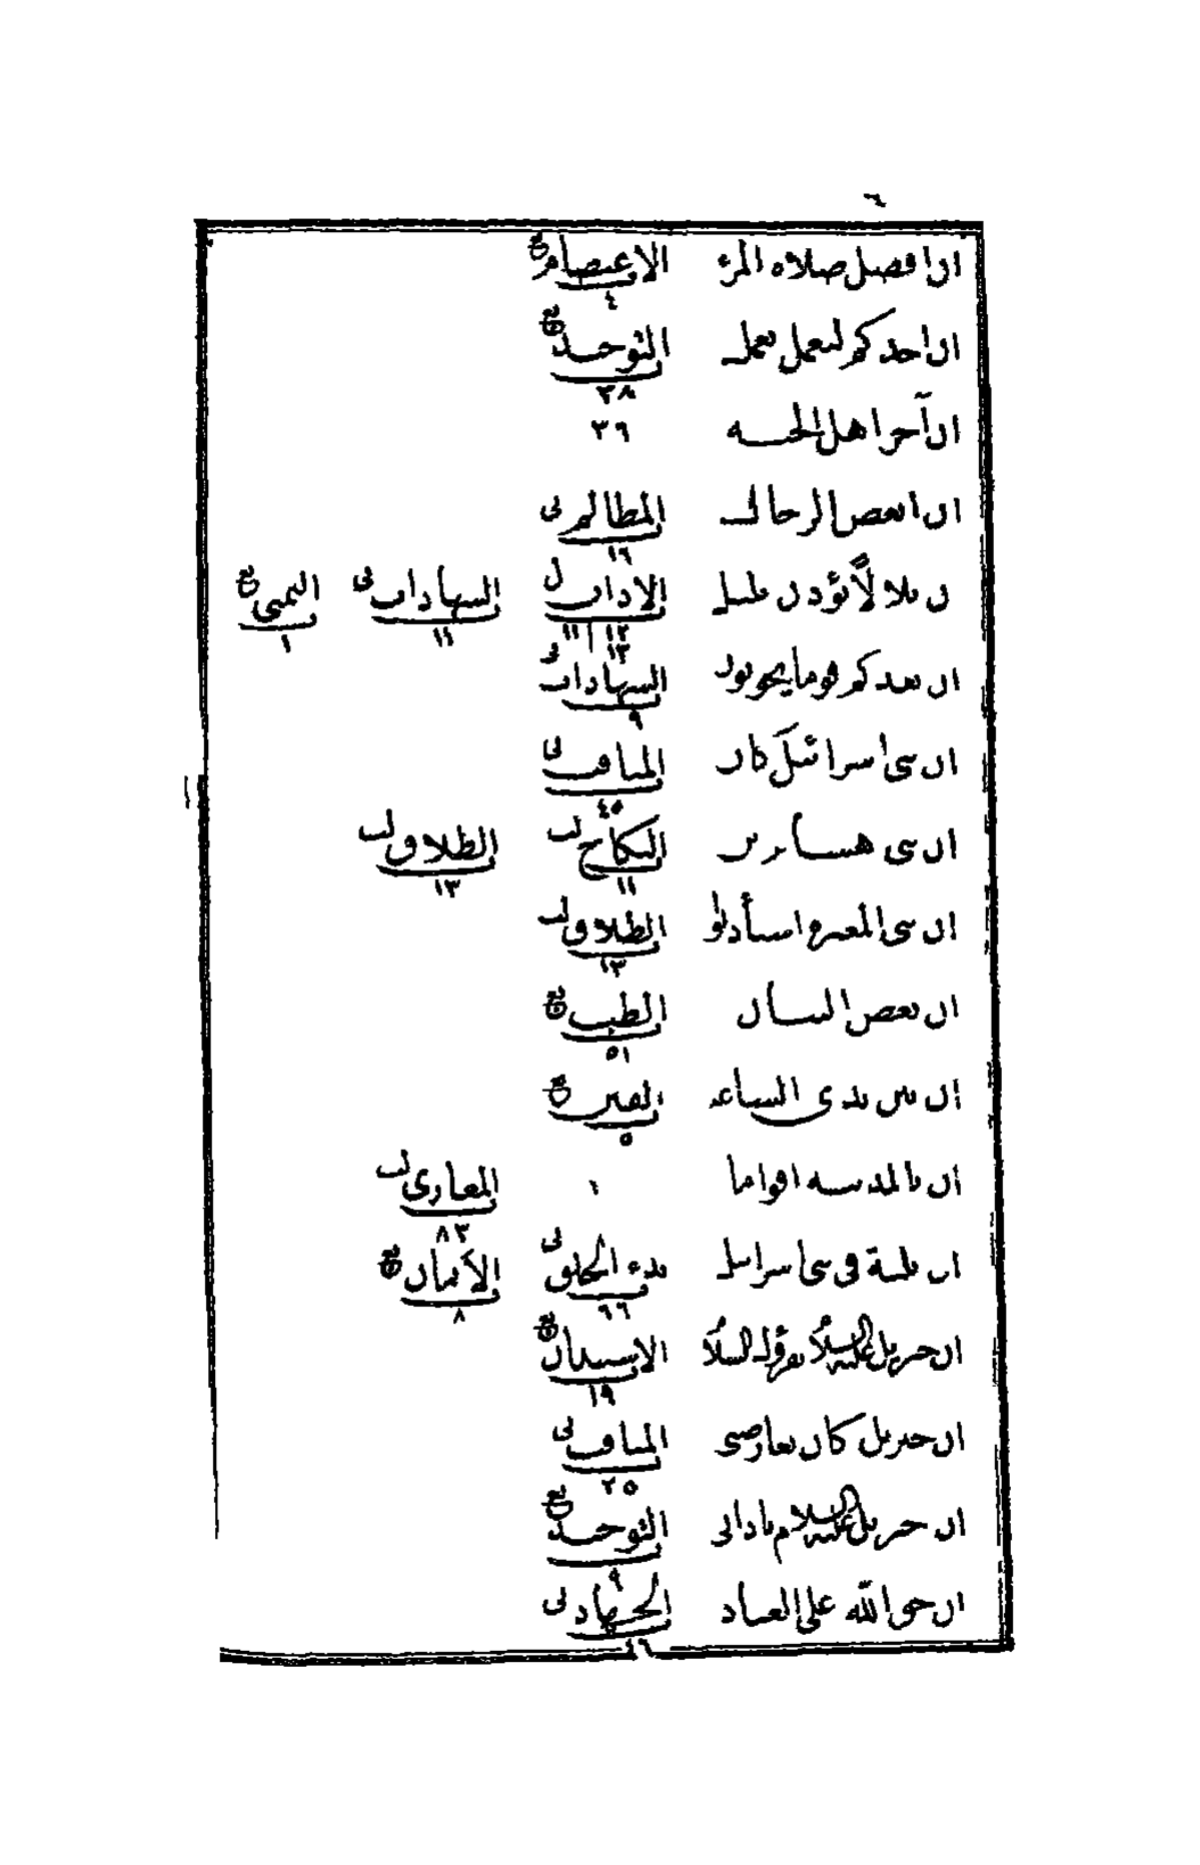 ان افضل صلاة المرء الاعتصام
٤
ان احدكم ليعمل بعمل التوحيد
٢٨
ان آخر اهل الجنة ٣٦
ان ابغض الرجال المظالم
١٦
ن بلالا يؤذن بليل الاذان الشهادات التمني
١٢ ١١ ١١ ١
١٣
ان بعدكم قوما يخونون الشهادات
٩
ان بني اسرائيل كان المناقب
٤٥
ان بني هشام بن النكاح الطلاق
١١ ١٣
ان بني المغيرة استأذنوا الطلاق
١٣
ان بعض البيان الطب
٥١
ان بين يدي الساعة الفتن
٥
ان بالمدينة اقواما ١ المغازي
٨٣
ان ثلثة في بني اسرائيل بدء الخلق الأيمان
٩٦ ٨
ان جبريل عليه السلام يقرئك السلام الاستيذان
١٩
ان جبريل كان يعارضني المناقب
٢٥
ان جبريل عليه السلام ناداني التوحيد
٩
ان حق الله على العباد الجهاد
٤٦